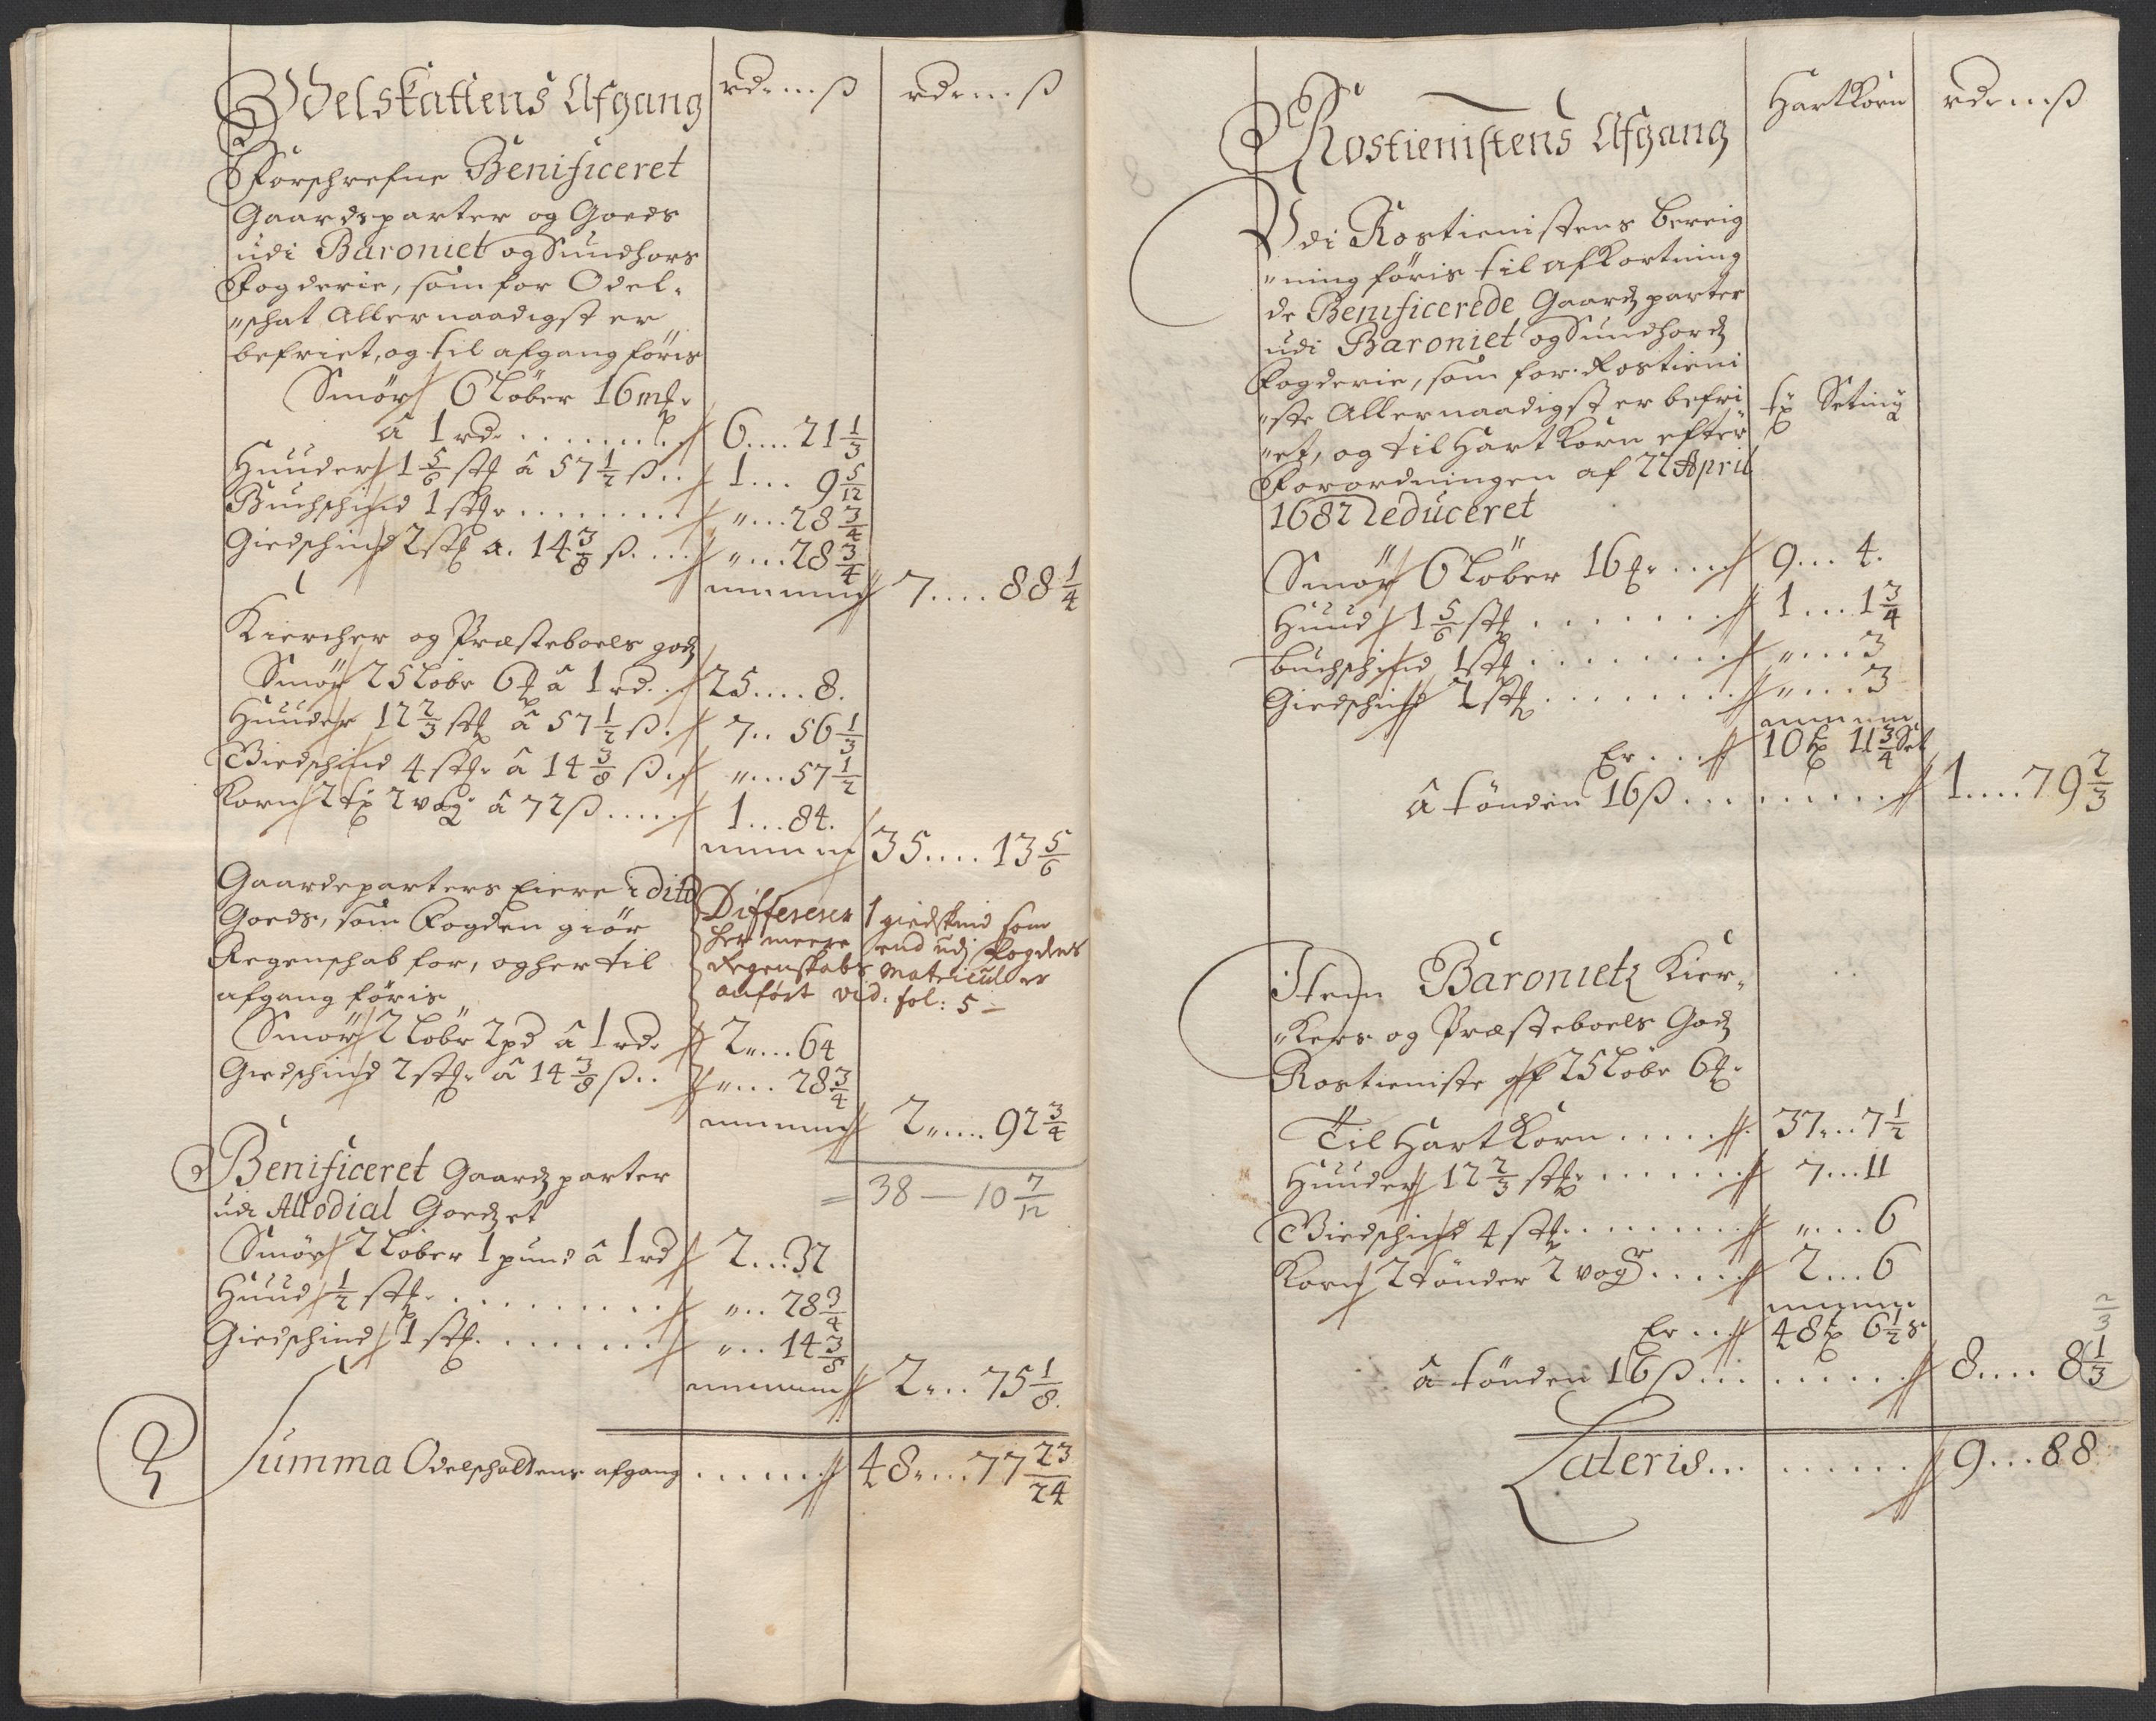 Odelskattens Afgang rd: m ß rd: m ß
Forschrefne Benificeret
Gaardsparter og Goeds
udi Baroniet og Sundhors
Fogderie, som for Odel-
"schat Allernaadigst er
befriet, og til afgang föris
Smör 6 Löber 16 mk
â 1 rd. ........ 6....21 1/3
Huuder 1 5/6 stk â 57 1/2 ß.. 1... 9 5/12
Buchschind 1 stk ........ "...28 3/4
Giedschind 2 stk a. 14 3/8 ß.... "...28 3/4
7....88 1/4
Kiercher og Præsteboels godz
Smör 25 Löbr 6 â 1 rd.. 25....8.
Huuder 12 2/3 stk â 57 1/2 ß. 7.. 56 1/3
Giedschind 4 stk. â 14 3/8 ß. "...57 1/2
Korn 2 2 vog â 72 ß..... 1...84.
35....13 5/6
Gaardeparters Eiere i dito
Goeds, som Fogden giör
Regenschab for, og her til
afgang föris
Differerer 1 giedskind som
her meere end udj Fogdens
Regenskabs Matricul er
anfört vid. fol: 5 –
Smör 2 Löbr 2 pd â 1 rd. 2....64
Giedschind 2 stk. â 14 3/8 ß.. "... 28 3/4
2.....92 3/4
= 38 — 10 7/12
Benificeret Gaardz parter
udi Allodial Goedzet
Smör 2 Löber 1 pund â 1 rd 2...32
Huud 1/2 stk. ......... "... 28 3/4
Giedschind 1 stk. ....... "... 14 3/8
2... 75 1/8.
Summa Odelschattens afgang ...... 48....77 23/24
Rostienistens Afgang HartKorn rd: m ß
Udi Rostienistens bereig
"ning föris til afkortning
de Benificerede Gaardz parter
udi Baroniet og Sundhordz
Fogderie, som for Rostieni
"ste Allernaadigst er befri
"et, og til HartKorn efter Setting
Forordningen af 22 April
1682 Reduceret
Smör 6 Löber 16 .... 9... 4.
Huud 1 5/6 stk ....... 1...1 3/4
buchschind 1 stk ........ "...3
Giedschind 2 stk ........ "...3
Er... 10 11 3/4 Set
â tönden 16 ß......... 1....79 2/3
Item Baronietz Kier-
"Kers og Præsteboels Godz
Rostieniste af 25 Löbr 6
Til HartKorn ..... 37...7 1/2
Huuder 12 2/3 stk ...... 7...11
Giedschind 4 stk........ "...6
Korn 2 tönder 2 vog .... 2...6
Er... 48 6 1/2 S.
2/3
â tönden 16 ß......... 8.... 8 1/3
Lateris......... 9...88